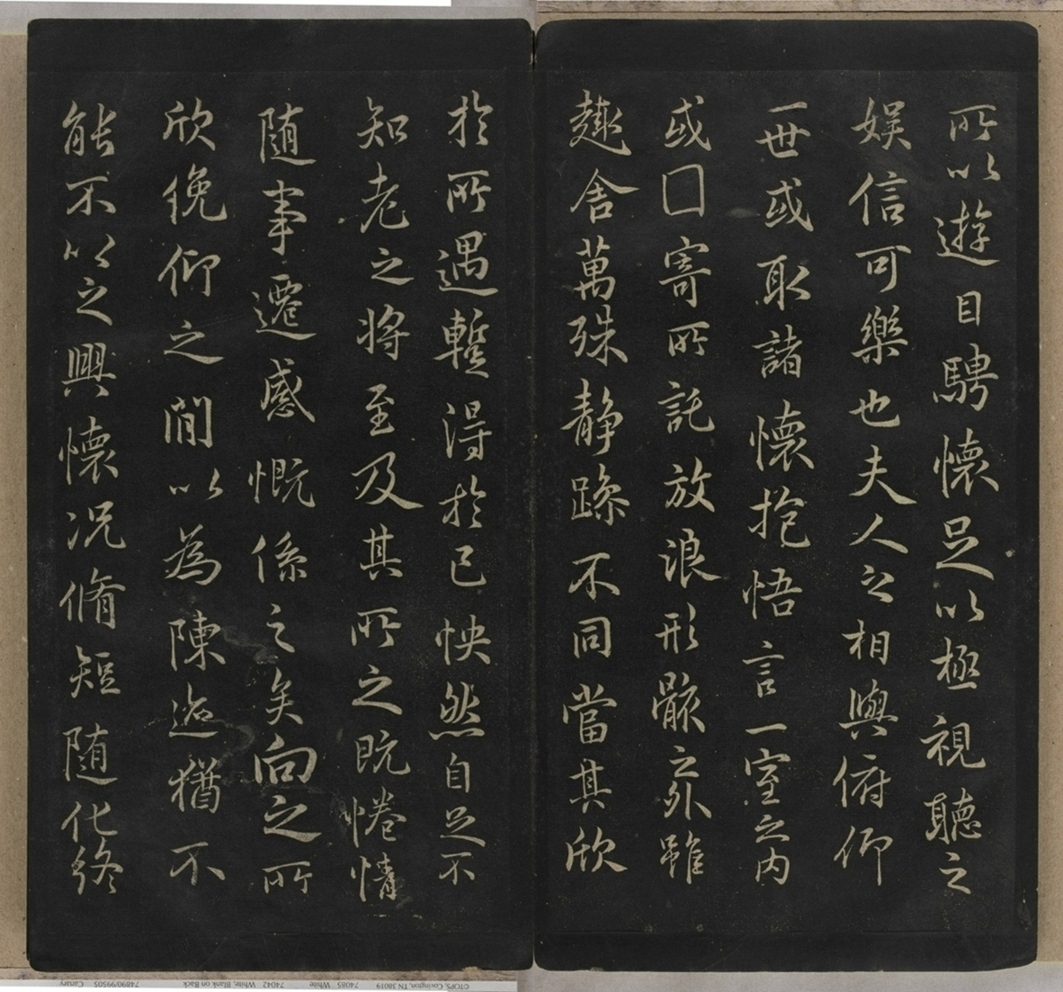 所以遊目騁懷足以極視聽之
娛信可樂也夫人之相與俯仰
一世或取諸懷抱悟言一室之内
或囗寄所託放浪形骸之外雖
趣舍萬殊静躁不同當其欣
於所遇暫得於己怏然自足不
知老之將至及其所之既惓情
随事遷感慨係之矣向之所
欣俛仰之閒以為陳迹猶不
能不以之興懷况脩短随化終
Covington, TN 38019 74085 White 74042 White, Blank on Back 74890/99505 Canary